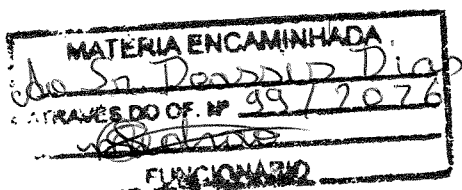 MATÉRIA ENCAMINHADA
Ao Sr. Dias
ATRAVÉS DO OF. Nº 99/2026
FUNCIONÁRIO